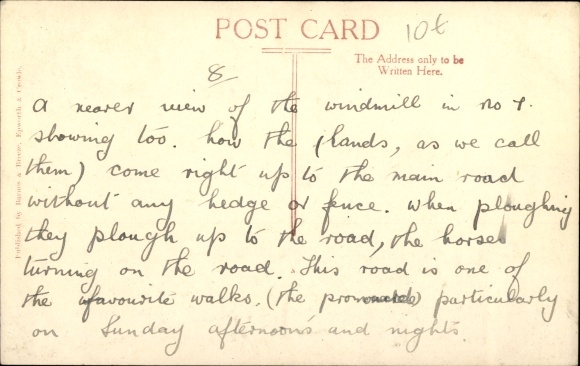 POST CARD
10t
The Address only to be
Written Here.
8
A nearer view of the windmill in no 7.
showing too. how the (lands, as we call
them) come right up to the main road
without any hedge or fence. when ploughing
they plough up to the road, the horses
turning on the road. This road is one of
the favourite walks. (the promonade) particularly
on Sunday afternoons and nights.
Published by Barnes & Breeze, Epworth & Crowle.